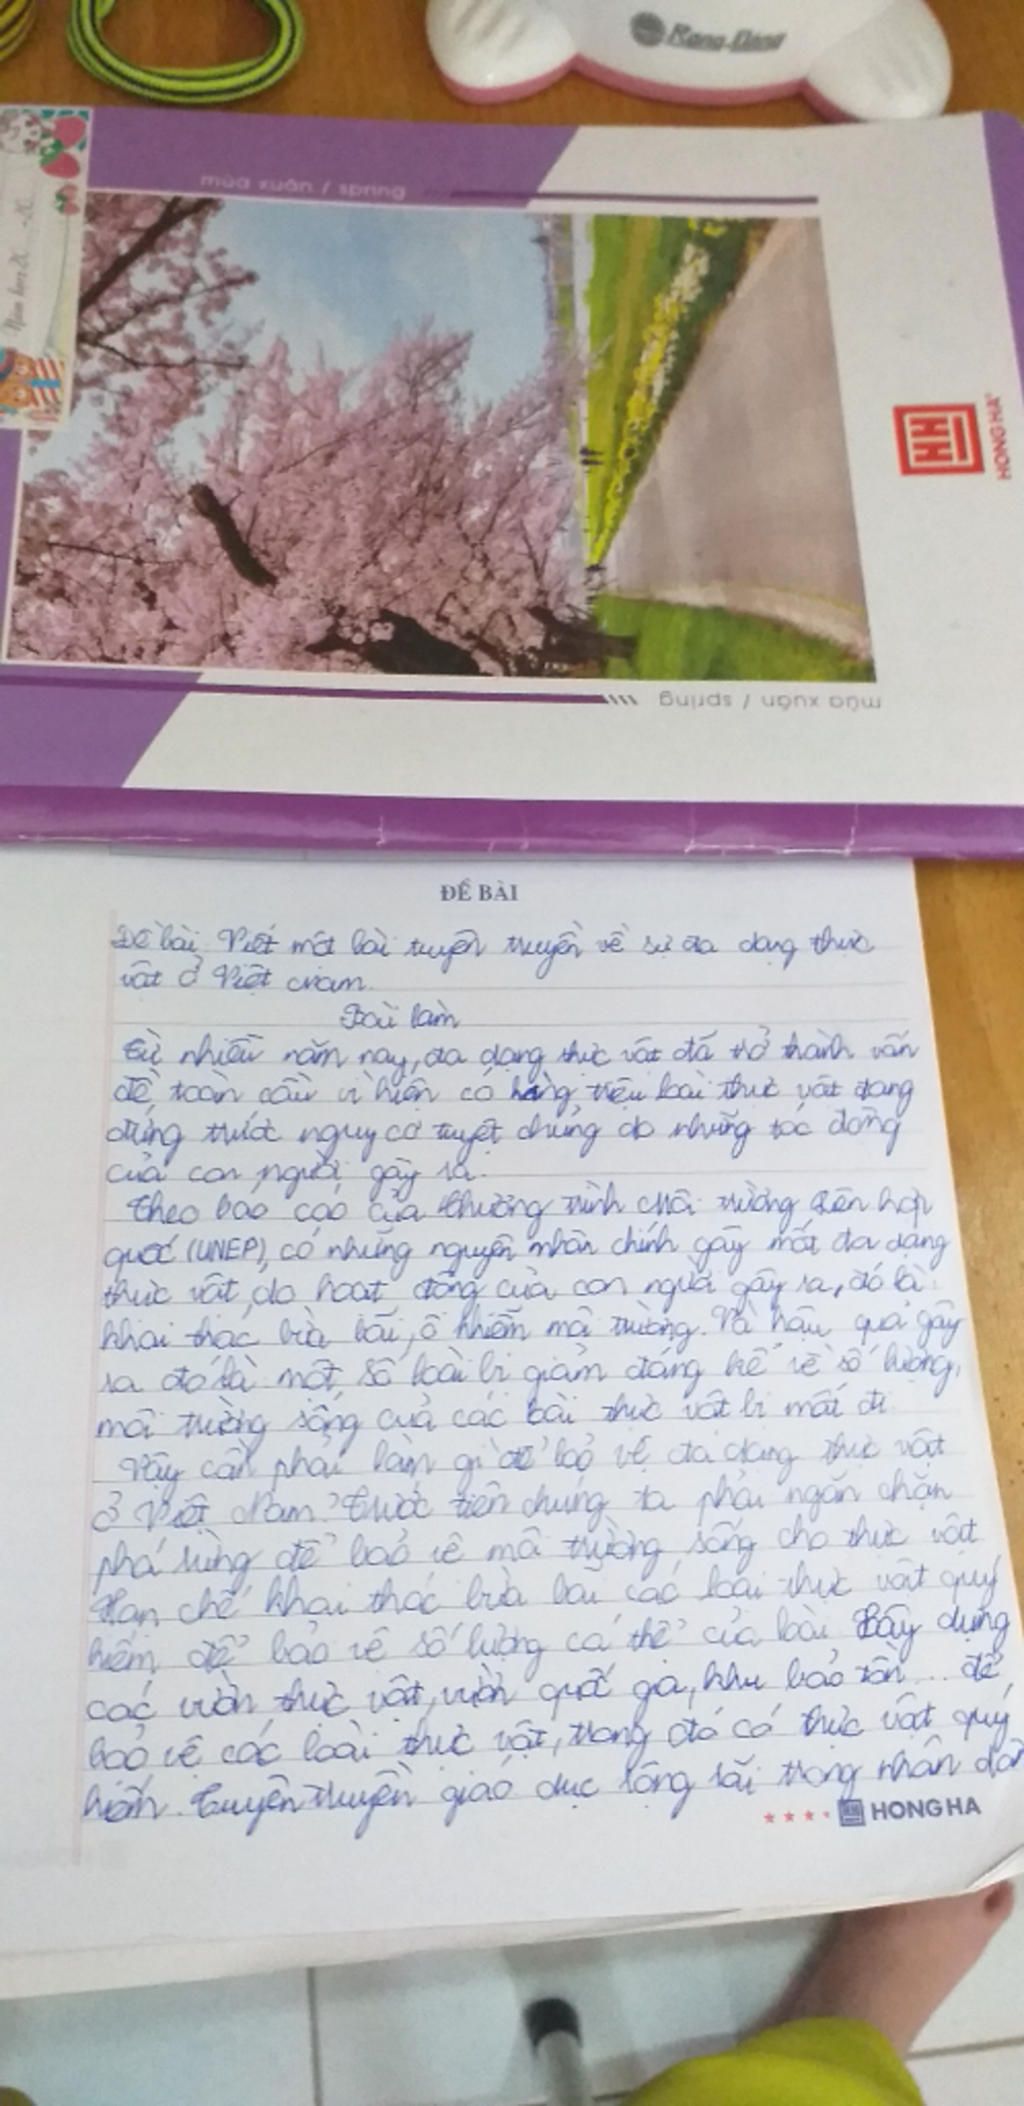 Rạng Đông
mùa xuân / spring
HONG HA
mùa xuân / spring
ĐỀ BÀI
Đề bài Viết một bài tuyên truyền về sự đa dạng thực
vật ở Việt Nam.
Bài làm
Từ nhiều năm nay, đa dạng thực vật đã trở thành vấn
đề toàn cầu vì hiện có hàng triệu loài thực vật đang
đứng trước nguy cơ tuyệt chủng do những tác động
của con người gây ra.
Theo báo cáo của Chương trình Môi trường Liên hợp
quốc (UNEP), có những nguyên nhân chính gây mất đa dạng
thực vật, do hoạt động của con người gây ra, đó là:
khai thác bừa bãi, ô nhiễm môi trường. Và hậu quả gây
ra đó là một số loài bị giảm đáng kể về số lượng,
môi trường sống của các loài thực vật bị mất đi.
Vậy cần phải làm gì để bảo vệ đa dạng thực vật
ở Việt Nam? Trước tiên chúng ta phải ngăn chặn
phá rừng để bảo vệ môi trường sống cho thực vật
Hạn chế khai thác bừa bãi các loài thực vật quý
hiếm để bảo vệ số lượng cá thể của loài. Xây dựng
các vườn thực vật, vườn quốc gia, khu bảo tồn... để
bảo vệ các loài thực vật, trong đó có thực vật quý
hiếm. Tuyên truyền giáo dục rộng rãi trong nhân dân
HONG HA